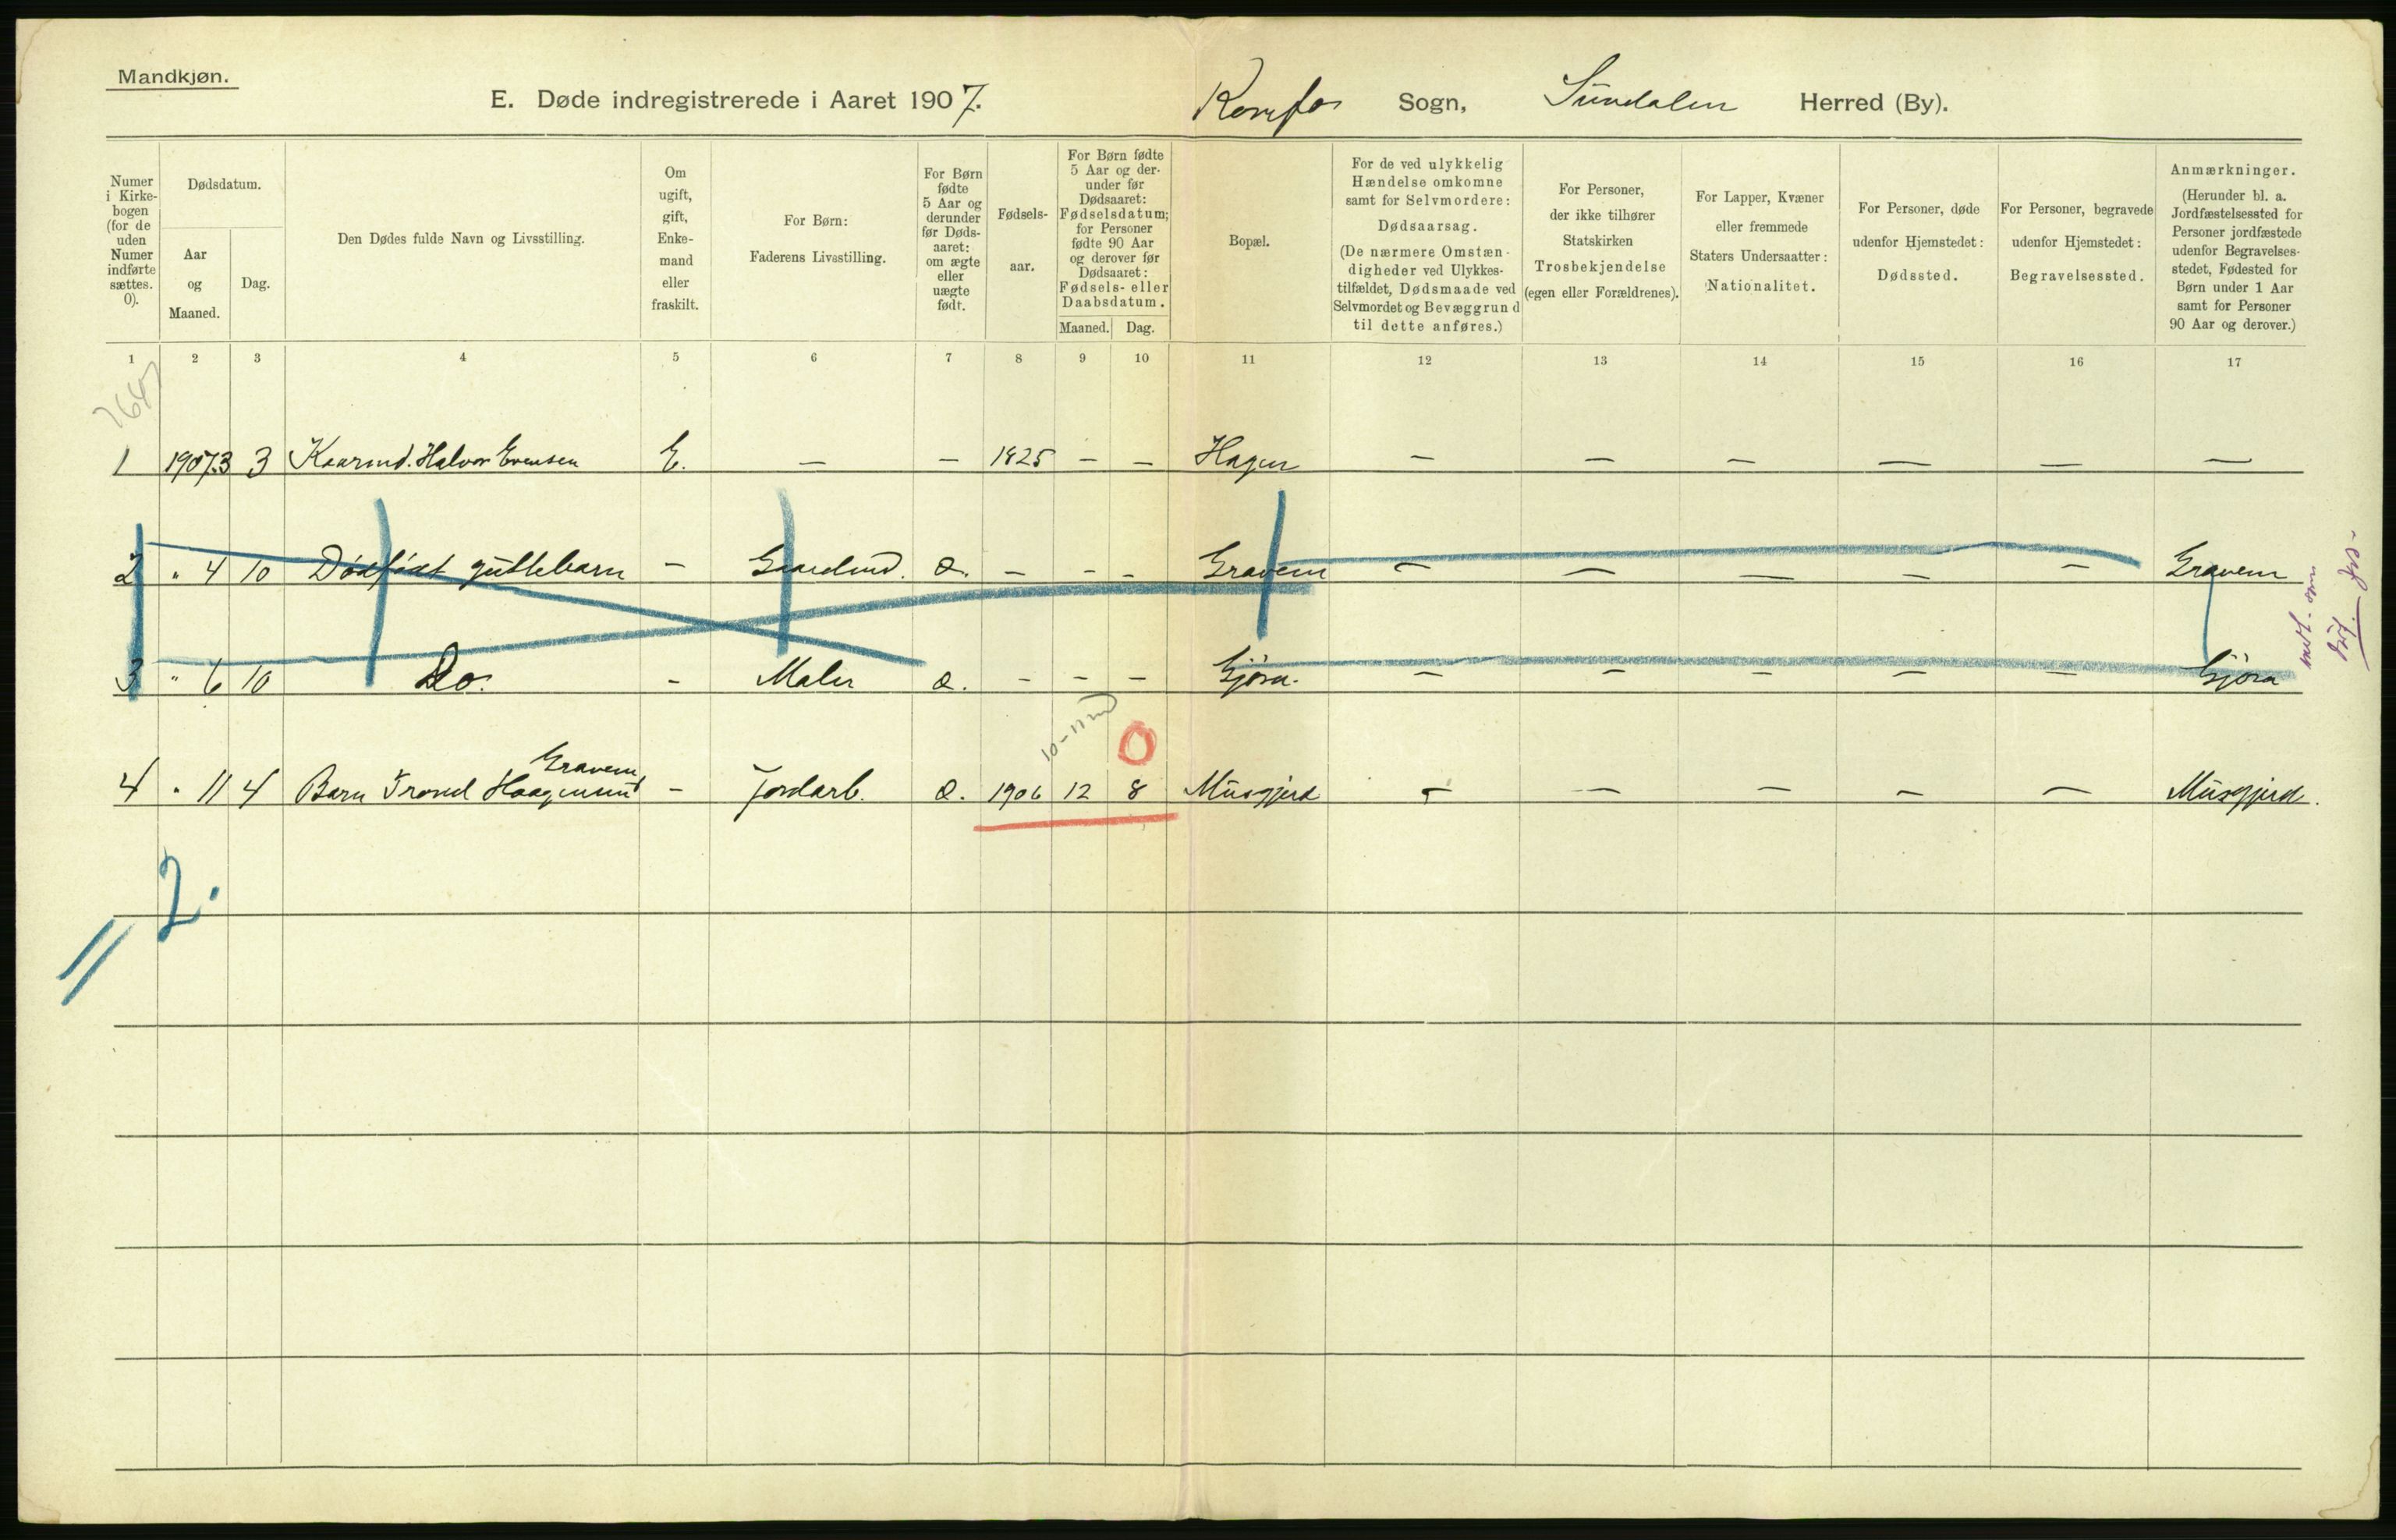 Mandkjøn.
E. Døde indregistrerede i Aaret 1907. Romfo Sogn, Sundalen Herred (By).
Numer i Kirke-bogen (for de uden Numer indførte sættes. 0).
Dødsdatum.
Aar og Maaned.
Dag.
Den Dødes fulde Navn og Livsstilling.
Om ugift, gift, Enke-mand eller fraskilt.
For Børn:
Faderens Livsstilling.
For Børn fødte 5 Aar og derunder før Døds-aaret: om ægte eller uægte født.
Fødsels-aar.
For Børn fødte 5 Aar og der-under før Dødsaaret: Fødselsdatum; for Personer fødte 90 Aar og derover før Dødsaaret: Fødsels- eller Daabsdatum.
Maaned. Dag.
Bopæl.
For de ved ulykkelig Hændelse omkomne samt for Selvmordere:
Dødsaarsag.
(De nærmere Omstæn-digheder ved Ulykkes-tilfældet, Dødsmaade ved Selvmordet og Bevæggrund til dette anføres.)
For Personer, der ikke tilhører Statskirken
Trosbekjendelse
(egen eller Forældrenes).
For Lapper, Kvæner eller fremmede Staters Undersaatter:
Nationalitet.
For Personer, døde udenfor Hjemstedet:
Dødssted.
For Personer, begravede udenfor Hjemstedet:
Begravelsessted.
Anmærkninger.
(Herunder bl. a. Jordfæstelsessted for Personer jordfæstede udenfor Begravelses-stedet, Fødested for Børn under 1 Aar samt for Personer 90 Aar og derover.)
1 2 3 4 5 6 7 8 9 10 11 12 13 14 15 16 17
1 1907.3 3 Kaarmd. Halvor Evensen E. — — 1825 — — Hagen — — — — — —
2 " 4 10 Dødfødt guttebarn — Gaardmd. æ. — — — Gravem — — — — — Gravem
3 " 6 10 Do. — Maler æ. — — — Gjøra. — — — — — Gjøra
10-11 md
0
Gravem
4 " 11 4 Barn Trond Haagensen — Jordarb. æ. 1906 12 8 Musgjerd — — — — — Musgjerd.
2.